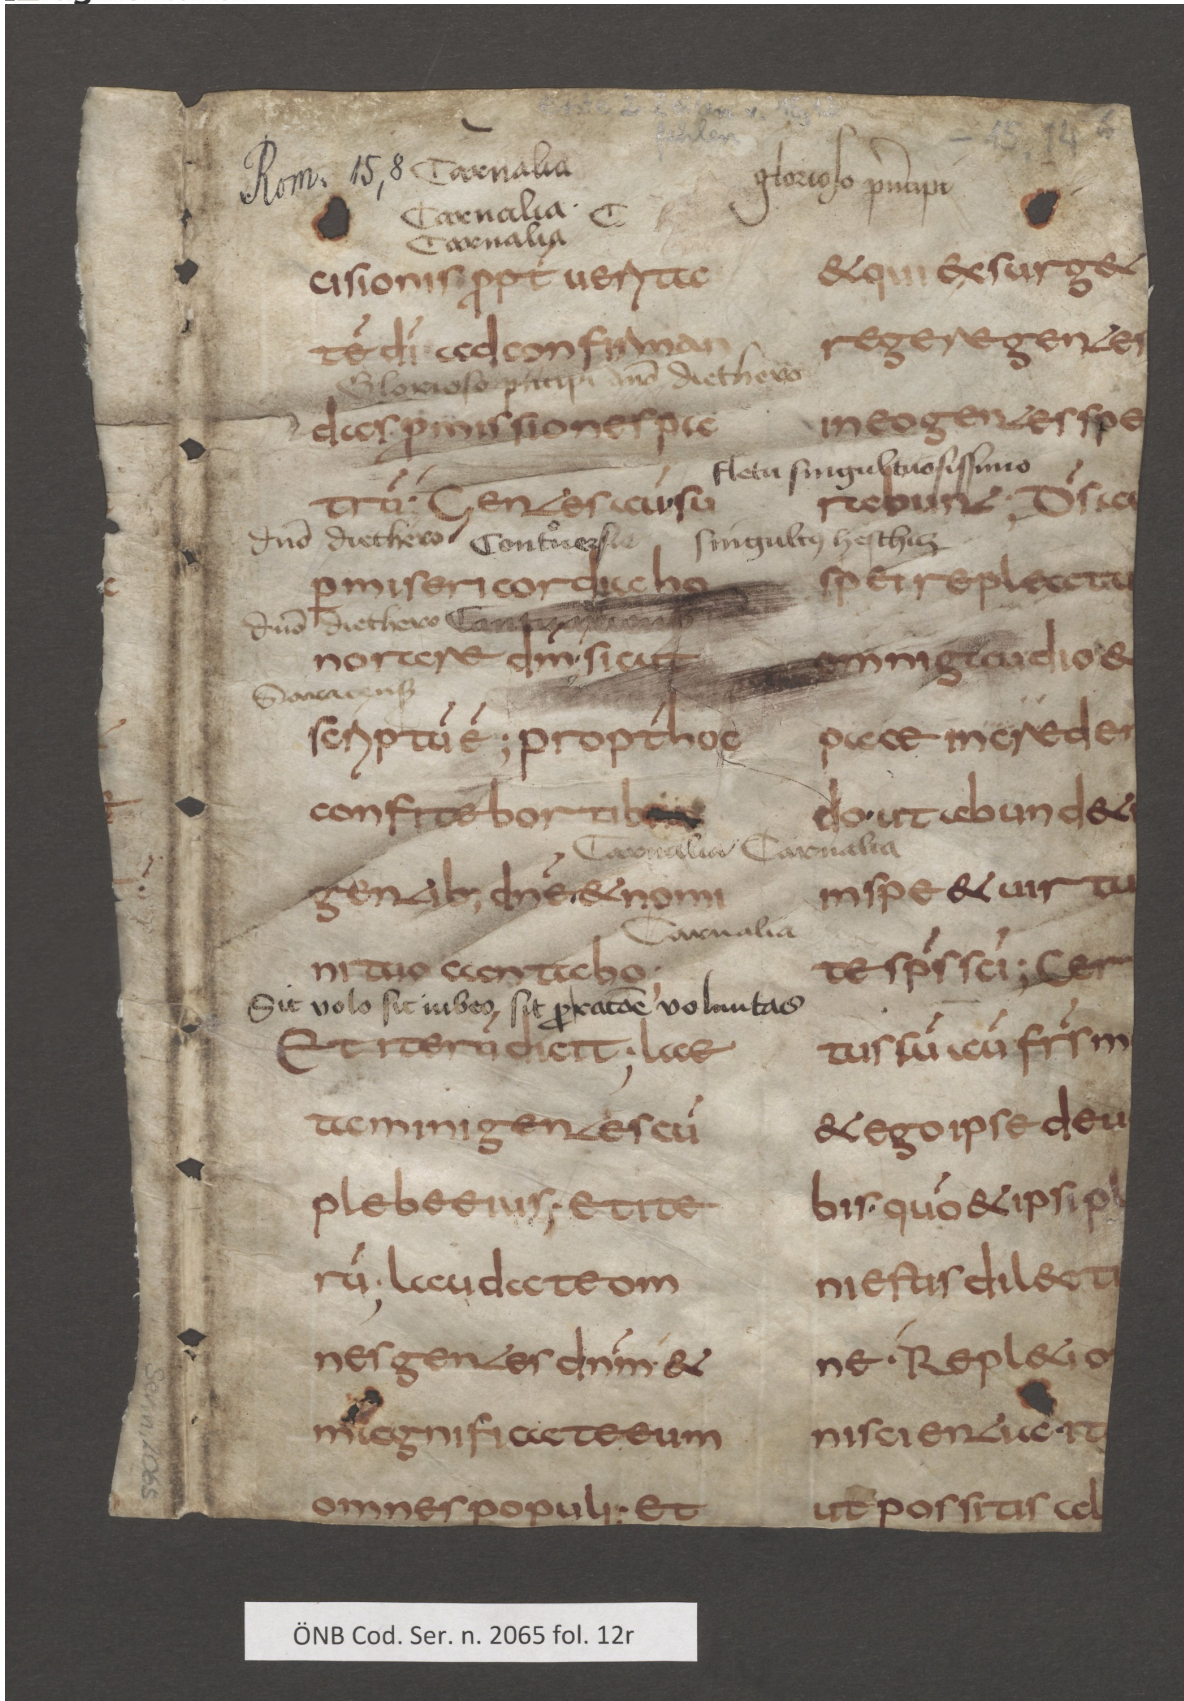 Rom. 15,8 Carnalia
glorioso pͥncipi
Carnalia. C
Carnalia
cisionis ꝓpt ueritɑ
tē dī ɑd confirmɑn
Glorioso pͥncipi dnō diethero
dɑs ꝓmissiones pɑ
trū· Gentes ɑū su
dnō diethero
ꝑ misericordiɑ ho
dnō diethero
norɑre dm̄· sicut
scriptū ē; propt hoc
confitebor tibi
Carnalia Carnalia
gentib; dnē & nomi
Carnalia
ni tuo cɑntɑbo·
Sic volo sic iubeo sit ꝓ racōe voluntas
Et iterū dicit; lɑe
tɑmini gentes cū
plebe eius; et ite
rū; lɑudɑte om
nes gentes dnm̄· &
mɑgnificɑte eum
omnes populi· Et
& qui exsurg&
regere gentes
in eo gentes spe
fletu singultuosissimo
rɑbunt; Ds ɑu
singultꝰ
spei repleɑt u
omni gɑudio &
pɑce in creden
do· ut ɑbund&i
in spe & uirtu
te sp̄s sc̄i; Cer
tus sū ɑū fr̄s m
& ego ipse de u
bis· quō & ipsi pl
ni estis dilecti
ne· Repl&i o
ni scientiɑ· it
ut possitis ɑl
Ser. n. 2065
ÖNB Cod. Ser. n. 2065 fol. 12r